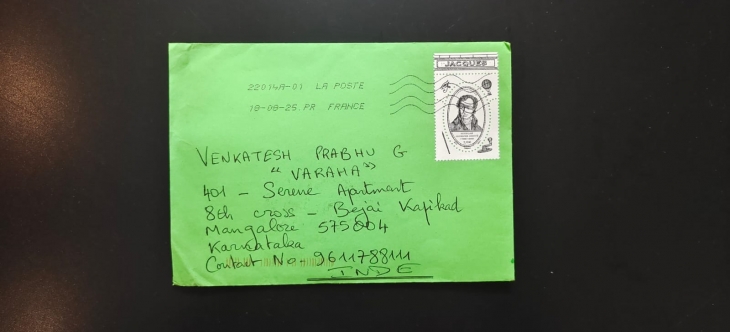 22014A-01 LA POSTE
19-09-25 PR FRANCE
JACQUES
VENKATESH PRABHU G
"VARAHA"
401 - Serene Apartment
8th cross - Bejai Kapikad
Mangalore 575004
Karnataka
Contact No. 9611788111
INDE